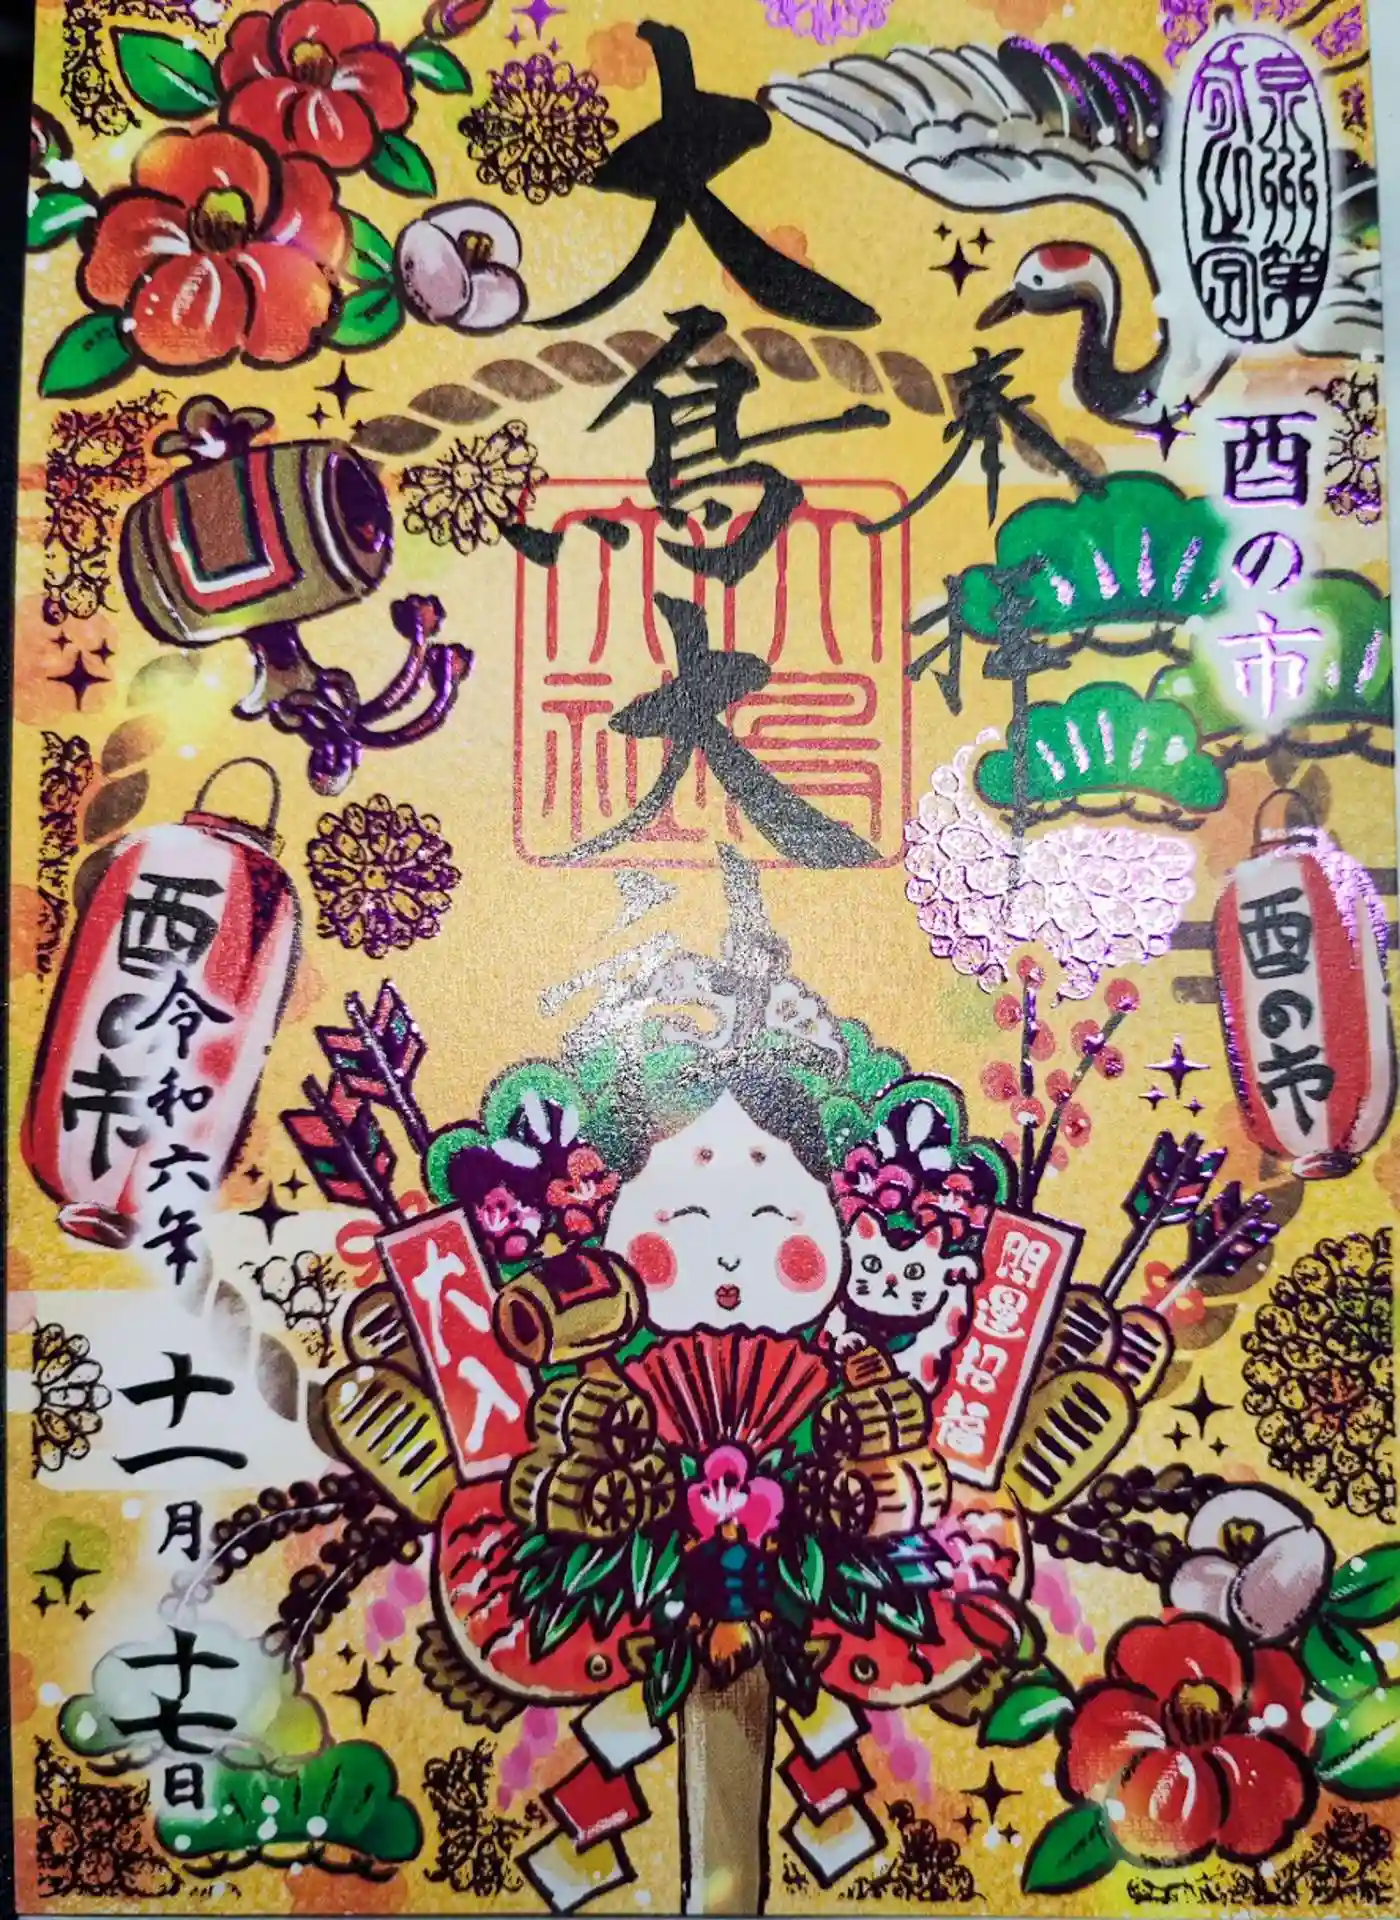 泉州第
酉の市
奉拝
大鳥大社
大鳥
大社
令和六年
十一月
十七日
酉の市
酉の市
開運招福
大入